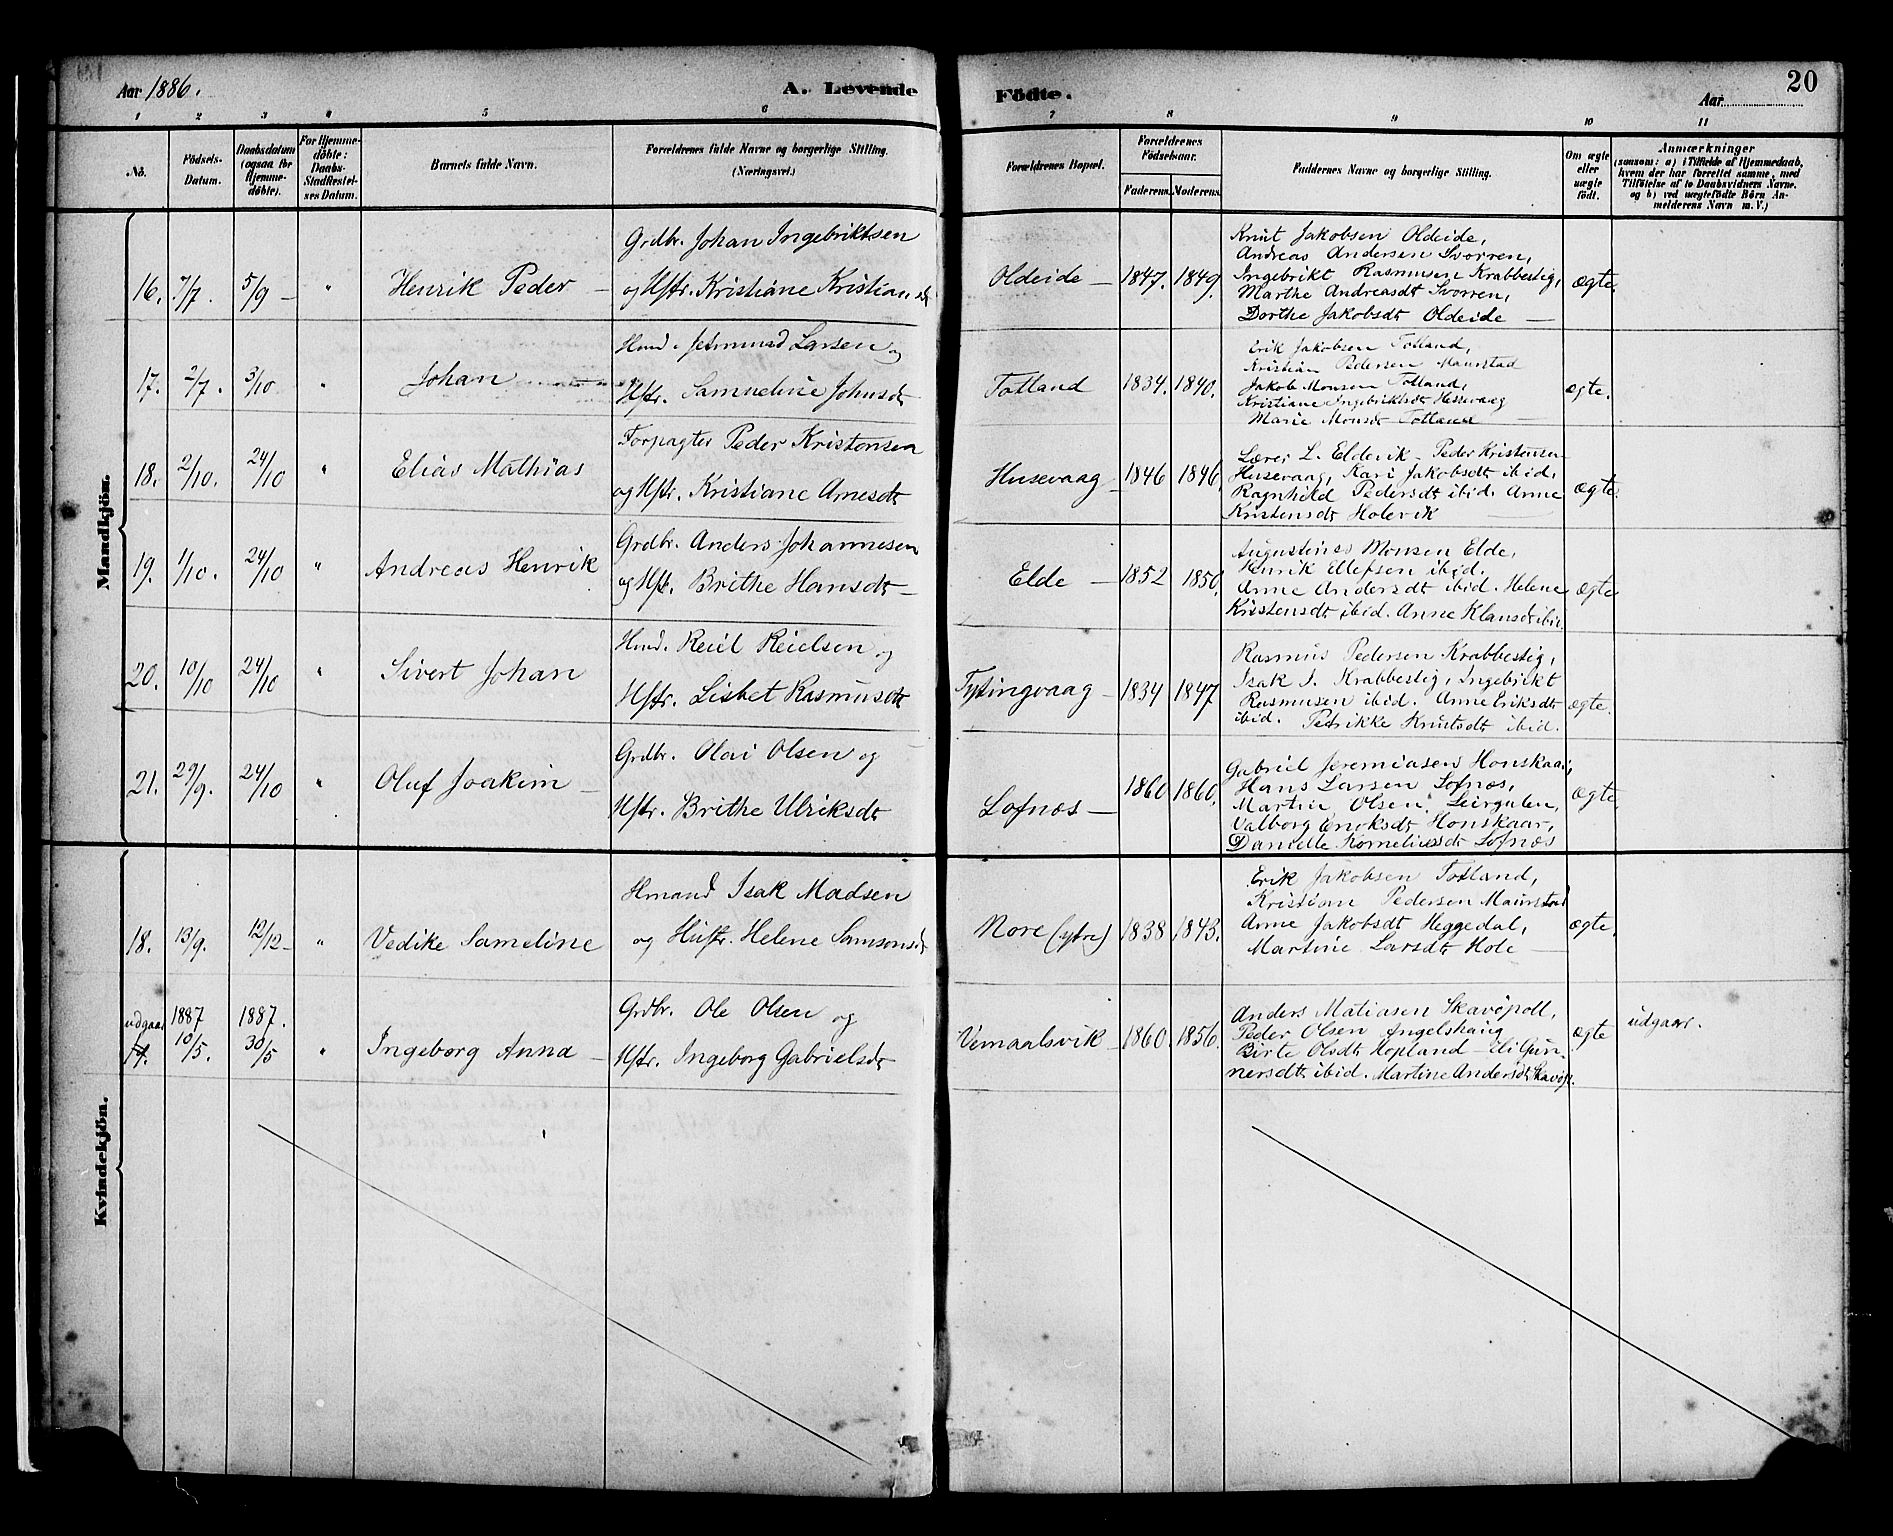 Aar 1886.
A. Levende
Födte.
Aar
20
1 2 3 4 5 6 7 8 9 10 11
No.
Födsels-
Datum.
Daabsdatum
(ogsaa for
Hjemme-
döbte).
For Hjemme-
döbte:
Daabs-
Stadfæstel-
ses Datum.
Barnets fulde Navn.
Forældrenes fulde Navne og borgerlige Stilling.
(Næringsvei.)
Forældrenes Bopæl.
Forældrenes
Födselsaar.
Faderens. Moderens.
Faddernes Navne og borgerlige Stilling.
Om ægte
eller
uægte
födt.
Anmærkninger
(saasom: a) i Tilfælde af Hjemmedaab,
hvem der har forrettet samme, med
Tilföielse af to Daabsvidners Navne,
og b) ved uægtefödte Börn An-
melderens Navn m. V.)
Mandkjön.
16. 7/7. 5/9 — "
Henrik Peder —
Grdbr. Johan Ingebriktsen
og Hstr. Kristiane Kristiansdt
Oldeide — 1847. 1849.
Knut Jakobsen Oldeide,
Andreas Andersen Svorren,
Ingebrikt Rasmusen Krabbestig,
Marthe Andreasdt Svorren,
Dorthe Jakobsdt Oldeide —
ægte.
17. 2/7. 3/10 "
Johan
Hmd. Jetmund Larsen og
Hstr. Samueline Johnsdt
Totland 1834. 1840.
Erik Jakobsen Totland,
Kristian Pedersen Maurstad
Jakob Monsen Totland,
Kristiane Ingebriktsdt Hessevaag
Marie Monsdt Totland —
ægte.
18. 2/10. 24/10 "
Elias Mathias
Forpagter Peder Kristensen
og Hstr. Kristiane Arnesdt
Husevaag — 1846 1846,
Lærer L. Eldevik — Peder Kristensen
Husevaag, Kari Jakobsdt ibid.
Ragnhild Pedersdt ibid. Anne
Kristensdt Holevik —
ægte.
19. 1/10. 24/10 "
Andreas Henrik
Grdbr. Anders Johannesen
og Hstr. Brithe Hansdt —
Elde — 1852 1850,
Augustinus Monsen Elde,
Henrik Ellefsen ibid.
Anne Andersdt ibid. Helene
Kristensdt ibid. Anne Klausdt ibid.
ægte
20. 10/10 24/10 "
Sivert Johan
Hmd. Reiel Reielsen og
Hstr. Lisbet Rasmusdt
Tytingvaag — 1834 1847
Rasmus Pedersen Krabbestig,
Isak J. Krabbestig, Ingebrikt
Rasmusen ibid. Anne Eriksdt
ibid. Petrikke Knutsdt ibid.
ægte.
21. 29/9. 24/10 "
Oluf Joakim —
Grdbr. Olai Olsen og
Hstr. Brithe Ulriksdt
Lofnes — 1860 1860,
Gabriel Jeremiasen Honskaar,
Hans Larsen Lofnes,
Martin Olsen Leirgulen,
Valborg Eriksdt Honskaar,
Danielle Korneliusdt Lofnes
ægte,
Kvindekjön.
18. 13/9. 12/12 — "
Vedike Sameline
Hmand Isak Madsen
og Hustr. Helene Samsonsdt
Nore (ytre) 1838 1843.
Erik Jakobsen Totland,
Kristian Pedersen Maurstad
Anne Jakobsdt Heggedal,
Martine Larsdt Hole —
ægte,
udgaar 1887 10/5. 1887. 30/5 "
Ingeborg Anna —
Grdbr. Ole Olsen og
Hstr. Ingeborg Gabrielsdt
Vemaalsvik — 1860. 1856.
Anders Matiasen Skavöpoll,
Peder Olsen Ingelshaug
Birte Olsdt Hopland — Eli Gun-
nersdt ibid. Martine Andersdt Skavöp.
ægte
udgaar.